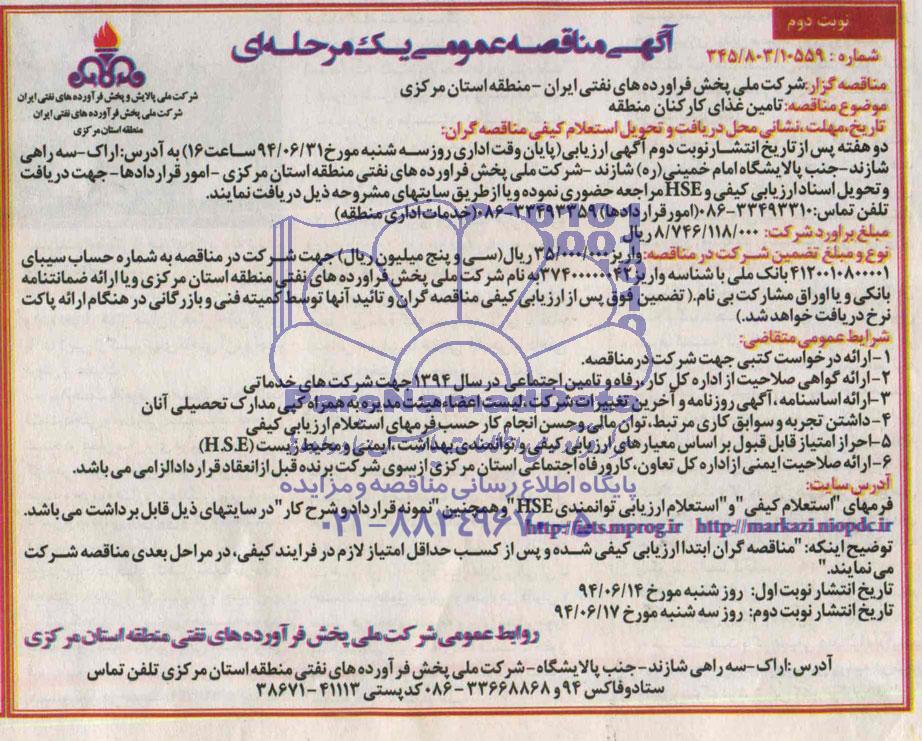 نوبت دوم
آگهی مناقصه عمومی یک مرحله‌ای
شماره : ۳۴۵/۸۰۳/۱۰۵۵۹
شرکت ملی پالایش و پخش فرآورده های نفتی ایران
شرکت ملی پخش فرآورده های نفتی ایران
منطقه استان مرکزی
مناقصه گزار: شرکت ملی پخش فراورده های نفتی ایران - منطقه استان مرکزی
موضوع مناقصه: تامین غذای کارکنان منطقه
تاریخ، مهلت، نشانی محل دریافت و تحویل استعلام کیفی مناقصه گران:
دو هفته پس از تاریخ انتشار نوبت دوم آگهی ارزیابی (پایان وقت اداری روز سه شنبه مورخ ۹۴/۰۶/۳۱ ساعت ۱۶) به آدرس: اراک - سه راهی
شازند - جنب پالایشگاه امام خمینی (ره) شازند - شرکت ملی پخش فراورده های نفتی منطقه استان مرکزی - امور قراردادها - جهت دریافت
و تحویل اسناد ارزیابی کیفی و HSE مراجعه حضوری نموده و یا از طریق سایتهای مشروحه ذیل دریافت نمایند.
تلفن تماس: ۳۳۴۹۳۳۱۰-۰۸۶ (امور قراردادها) ۳۳۴۹۳۳۵۹-۰۸۶ (خدمات اداری منطقه)
مبلغ برآورد شرکت: ۸/۷۴۶/۱۱۸/۰۰۰ ریال
نوع و مبلغ تضمین شرکت در مناقصه: واریز ۳۵/۰۰۰/۰۰۰ ریال (سی و پنج میلیون ریال) جهت شرکت در مناقصه به شماره حساب سیبای
۴۱۲۰۰۱۰۸۰۰۰۰۱ بانک ملی با شناسه واریز به نام شرکت ملی پخش فراورده های نفتی منطقه استان مرکزی و یا ارائه ضمانتنامه
بانکی و یا اوراق مشارکت بی نام. ( تضمین فوق پس از ارزیابی کیفی مناقصه گران و تائید آنها توسط کمیته فنی و بازرگانی در هنگام ارائه پاکت
نرخ دریافت خواهد شد.)
شرایط عمومی متقاضی:
۱- ارائه درخواست کتبی جهت شرکت در مناقصه.
۲- ارائه گواهی صلاحیت از اداره کل کار، رفاه و تامین اجتماعی در سال ۱۳۹۴ جهت شرکت های خدماتی
۳- ارائه اساسنامه، آگهی روزنامه و آخرین تغییرات شرکت، لیست اعضاء هیئت مدیره به همراه کپی مدارک تحصیلی آنان
۴- داشتن تجربه و سوابق کاری مرتبط، توان مالی و حسن انجام کار حسب فرمهای استعلام ارزیابی کیفی
۵- احراز امتیاز قابل قبول بر اساس معیارهای ارزیابی کیفی و توانمندی بهداشت، ایمنی و محیط زیست (H.S.E)
۶- ارائه صلاحیت ایمنی از اداره کل تعاون، کار و رفاه اجتماعی استان مرکزی از سوی شرکت برنده قبل از انعقاد قرارداد الزامی می باشد.
ParsNamadData
پایگاه اطلاع رسانی مناقصه و مزایده
۰۲۱-۸۸۳۴۹۶۷۰-۵
آدرس سایت:
فرمهای "استعلام کیفی" و "استعلام ارزیابی توانمندی HSE" و همچنین "نمونه قرارداد و شرح کار" در سایتهای ذیل قابل برداشت می باشد.
http://iets.mporg.ir http://markazi.niopdc.ir
توضیح اینکه: "مناقصه گران ابتدا ارزیابی کیفی شده و پس از کسب حداقل امتیاز لازم در فرایند کیفی، در مراحل بعدی مناقصه شرکت
می نمایند."
تاریخ انتشار نوبت اول: روز شنبه مورخ ۹۴/۰۶/۱۴
تاریخ انتشار نوبت دوم: روز سه شنبه مورخ ۹۴/۰۶/۱۷
روابط عمومی شرکت ملی پخش فرآورده های نفتی منطقه استان مرکزی
آدرس: اراک - سه راهی شازند - جنب پالایشگاه - شرکت ملی پخش فرآورده های نفتی منطقه استان مرکزی تلفن تماس
ستاد و فاکس ۹۴ و ۳۳۶۶۸۸۶۸ - ۰۸۶ کدپستی ۴۱۱۱۳ - ۳۸۶۷۱